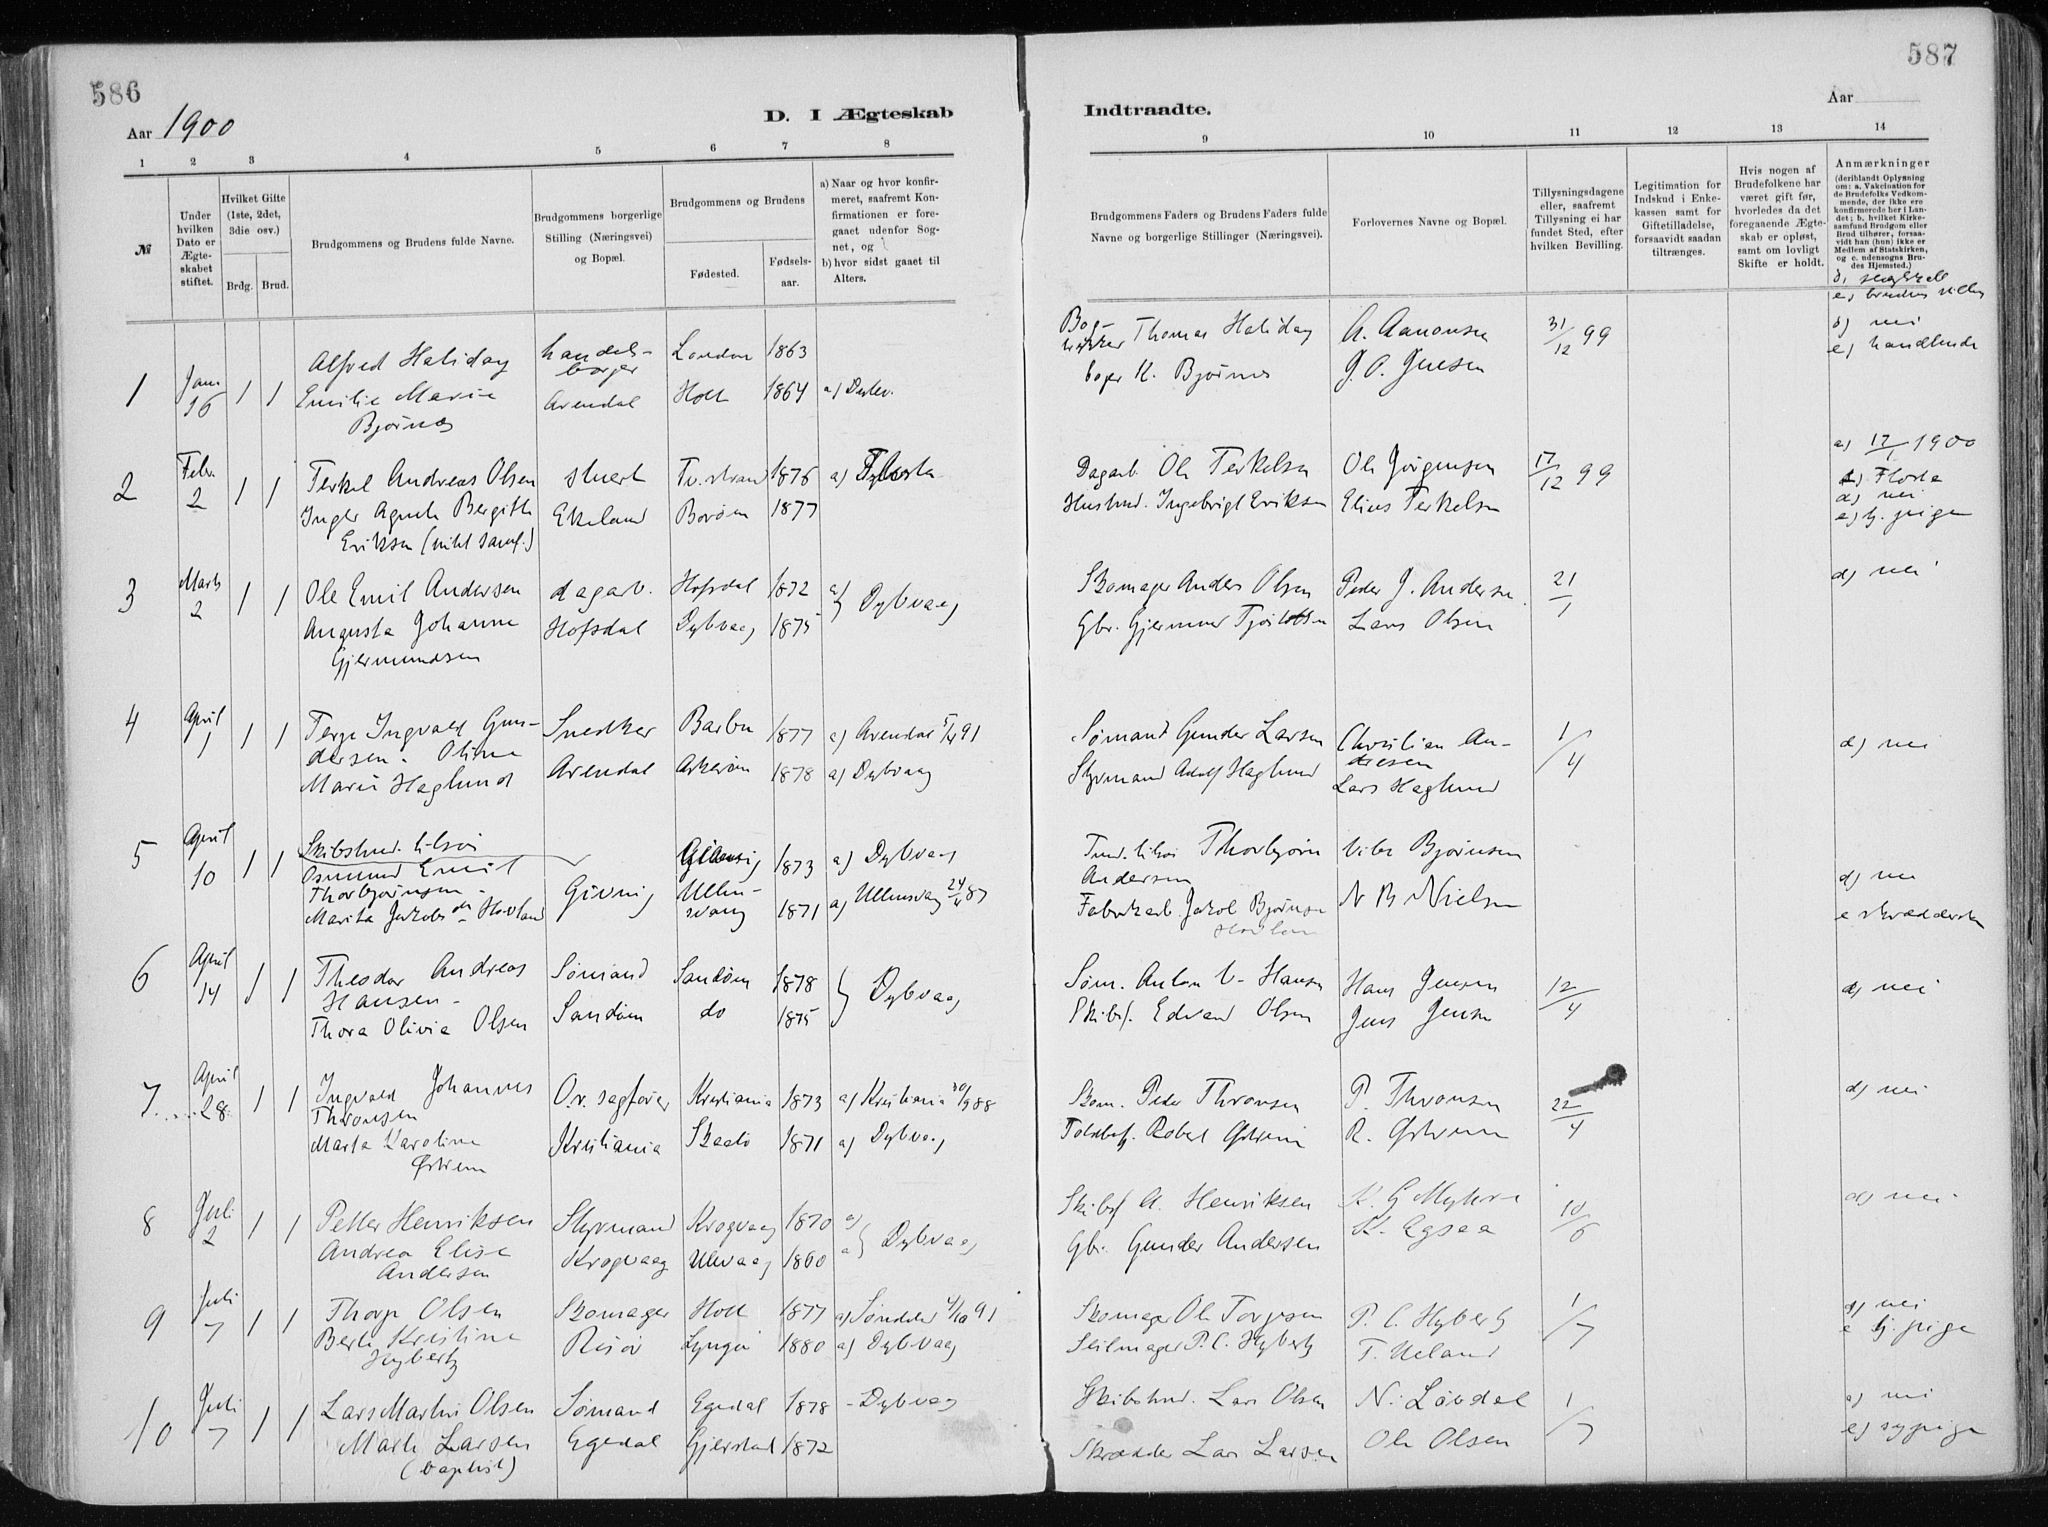 586
Aar 1900
D. I Ægteskab
1 2 3 4 5 6 7 8
№
Under hvilken Dato er Ægteskabet stiftet.
Hvilket Gifte (1ste, 2det, 3die osv.)
Brdg. Brud.
Brudgommens og Brudens fulde Navne.
Brudgommens borgerlige Stilling (Næringsvei) og Bopæl.
Brudgommens og Brudens
Fødested. Fødsels-aar.
a) Naar og hvor konfirmeret, saafremt Konfirmationen er foregaaet udenfor Sognet, og
b) hvor sidst gaaet til Alters.
1 Jan. 16 1 1
Alfred Haliday handels- London 1863
borger
Emilie Marie Arendal Holt 1864 a)
Bjørnæs
2 Febr. 2 1 1
Terkel Andreas Olsen stuert Tv.strand 1876 a) Flosta
Inger Agnete Bergith Ekeland Borøen 1877
Eriksen
3 Marts 2 1 1
Ole Emil Andersen dagarb. Hofsdal 1872 a) Dybvaag
Augusta Johanne Hofsdal Dybvaag 1875
Gjermundsen
4 April 1 1 1
Terje Ingvald Gun- Snedker Barbu 1877 a) Arendal 5/4 91
dersen. Oline
Marie Haglund Arendal Askerøen 1878 a) Dybvaag
5 April 10 1 1
Skibstmd. tilsøi
Osmund Emil 1873 a) Dybvaag
Thorbjørnsen - Givning Ullens- a) Ullensvang 24/4 87
Marita Jakobsdtr Hovland vang 1871
6 April 14 1 1
Theodor Andreas Sømand Sandøen 1878 Dybvaag
Hansen -
Thora Olivia Olsen Sandøen do 1875
7 April 28 1 1
Ingvald Johannes O.r. sagfører Kristiania 1873 a) Kristiania 30/9 88
Thronsen
Marta Karoline Kristiania Skaatø 1871 a) Dybvaag
Østrem
8 Juli 2 1 1
Petter Henriksen Styrmand Krogvaag 1870 a)
Andrea Elise Krogvaag Ulevaag 1860 a) Dybvaag
Andersen
9 Juli 7 1 1
Thorje Olsen Skomager Holt 1877 a) Søndeled 4/10 91
Berte Kristine Risør Lyngør 1880 a) Dybvaag
Hybertz
10 Juli 7 1 1
Lars Martin Olsen Sømand Egedal 1878 - Dybvaag
Marte Larsen Egedal Gjerstad 1872
(baptist)
587
Indtraadte.
Aar
9 10 11 12 13 14
Brudgommens Faders og Brudens Faders fulde Navne og borgerlige Stillinger (Næringsvei).
Forlovernes Navne og Bopæl.
Tillysningsdagene eller, saafremt Tillysning ei har fundet Sted, efter hvilken Bevilling.
Legitimation for Indskud i Enkekassen samt for Giftetilladelse, forsaavidt saadan tiltrænges.
Hvis nogen af Brudefolkene har været gift før, hvorledes da det foregaaende Ægteskab er opløst, samt om lovligt Skifte er holdt.
Anmærkninger
(deriblandt Oplysning om: a. Vakcination for de Brudefolks Vedkommende, der ikke ere konfirmerede her i Landet; b. hvilket Kirkesamfund Brudgom eller Brud tilhører, forsaavidt han (hun) ikke er Medlem af Statskirken, og c. udensogns Brudes Hjemsted.)
d) slegtskab
e) brudens stilling
Thomas Haliday A. Aanonsen 31/12 99 d) nei
N. Bjørnes J. O. Jensen e) handlende
a) 17/1 1900
Dagarb. Ole Terkelsen Ole Jørgensen 17/12 99 Flosta
Husmd. Ingebrigt Eriksen Elias Terkelsen d) nei
e) tj. pige
Skomager Anders Olsen Peder J. Andersen 21/1 d) nei
Gbr. Gjermund Lars Olsen
Sømand Gunder Larsen Christian An- 1/4 d) nei
dresen
Styrmand Adolf Haglund Lars Haglund
Tmd. tilsøi Thorbjørn Bjørnsen
Andersen d) nei
Fabrikarb. Jakob Bjørnsen N B Nielsen e skrædderske
Hovland
Søm. Anton V. Hansen Hans Jensen 12/4 d) nei
Skibsf. Edvard Olsen Jens Jensen
Skom. Peder Thronsen P. Thronsen 22/4 d) nei
Toldbetj. Robert Østrem R. Østrem
Skibsf A. Henriksen K. G Myhre 10/6 d) nei
Gbr. Gunder Andersen K. Egsaa
Skomager Ole Torjesen P. C. Hybertz 1/7 d) nei
Seilmager P. C. Hybertz T. Ueland e tj. pige
Skibstmd. Lars Olsen N. Løvdal 1/7 d) nei
Skrædder Lars Larsen Ole Olsen e) sypige